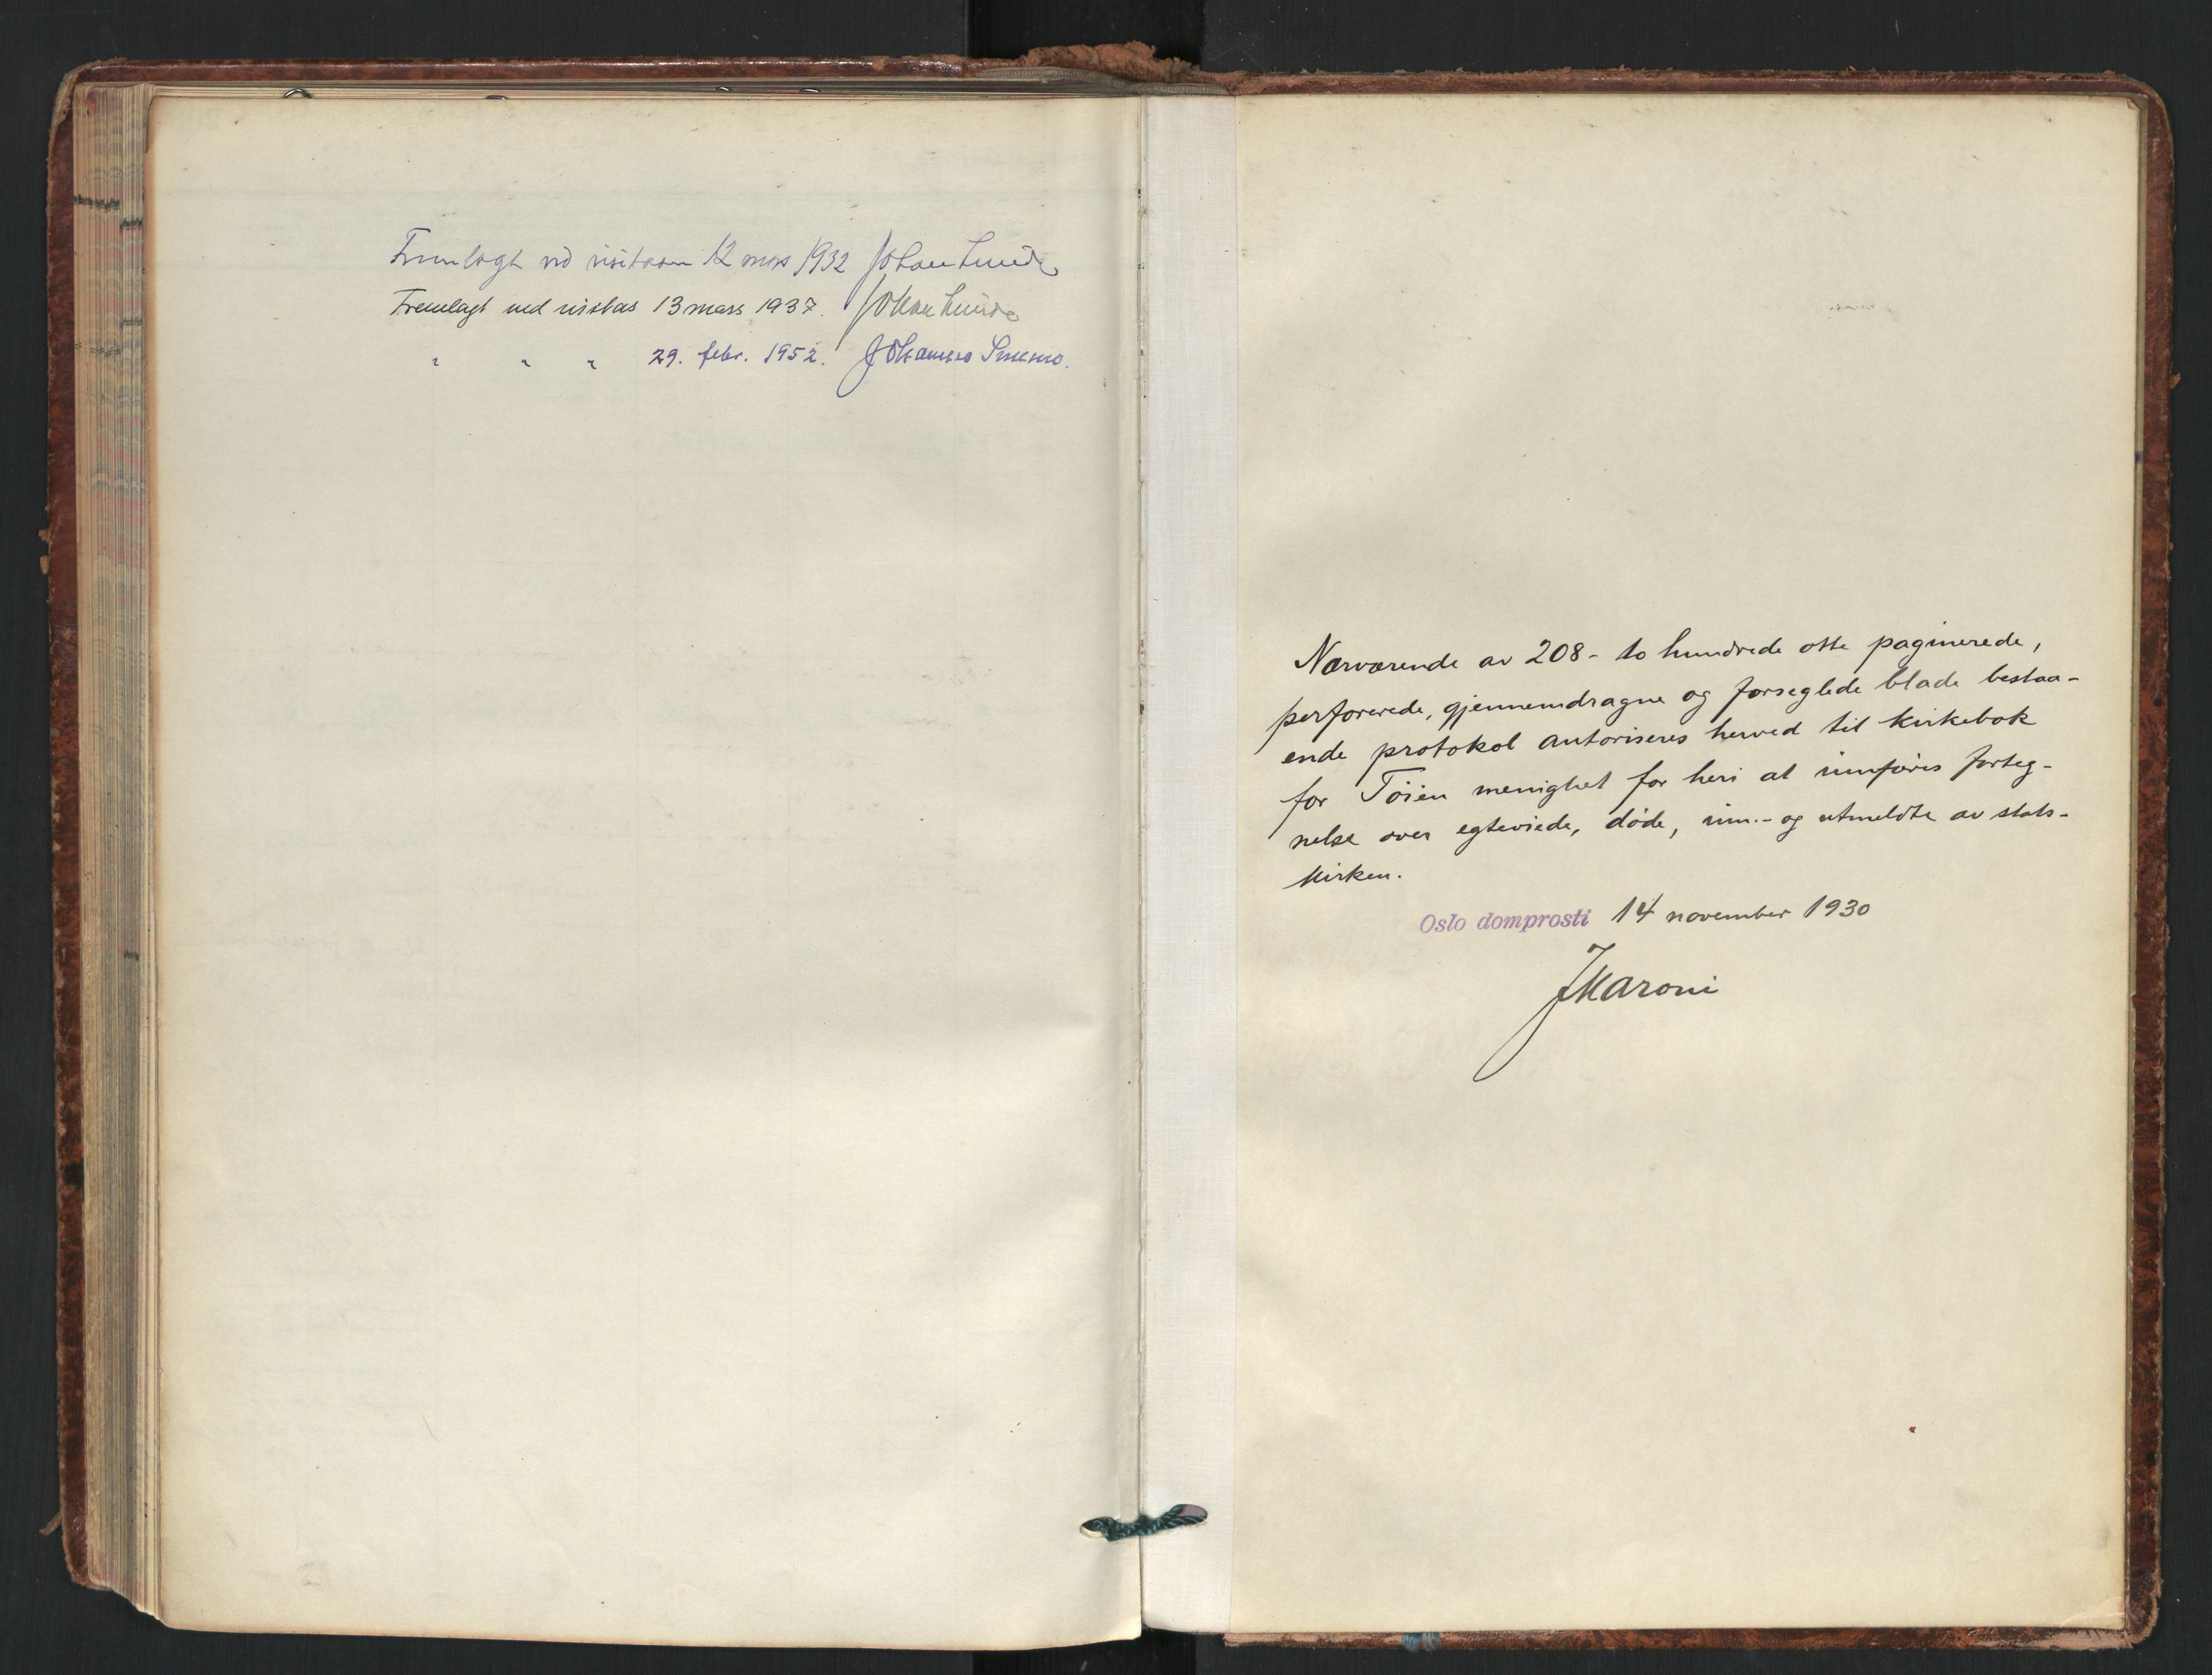 Fremlagt ved visitasen 12 mars 1932 Johan Lunde
Fremlagt ved visitas 13 mars 1937. Johan Lunde
" " " 29. febr. 1952. Johannes Smemo.
Nærværende av 208 - to hundrede otte paginerede,
perforerede, gjennemdragne og forseglede blade bestaa-
ende protokol autoriseres herved til kirkebok
for Tøien menighet for heri at innføres forteg-
nelse over egteviede, døde, inn- og utmeldte av stats-
kirken.
Oslo domprosti 14 november 1930
JMaroni